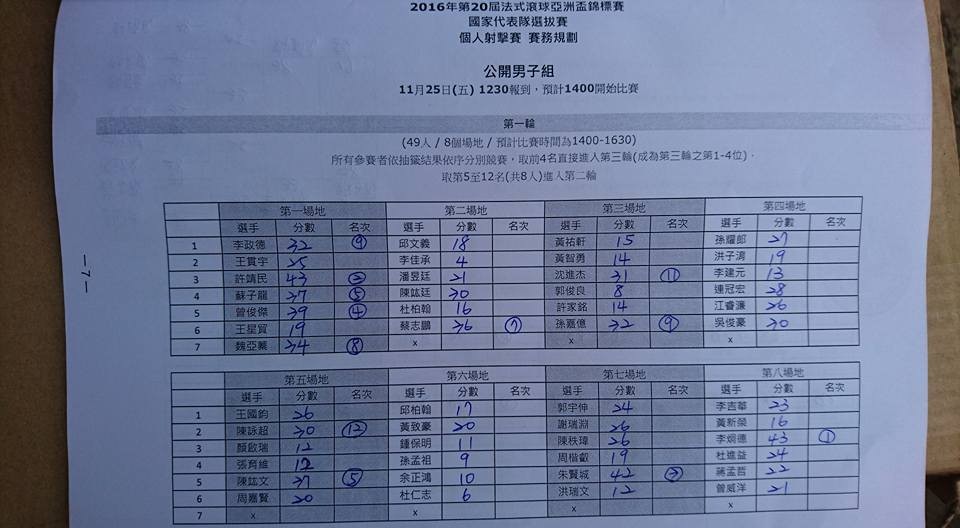 2016年第20屆法式滾球亞洲盃錦標賽
國家代表隊選拔賽
個人射擊賽 賽務規劃
公開男子組
11月25日(五) 1230報到，預計1400開始比賽
第一輪
(49人 / 8個場地 / 預計比賽時間為1400-1630)
所有參賽者依抽籤結果依序分別競賽，取前4名直接進入第三輪(成為第三輪之第1-4位)．
取第5至12名(共8人)進入第二輪
第一場地 第二場地 第三場地 第四場地
選手 分數 名次 選手 分數 名次 選手 分數 名次 選手 分數 名次
1 李政德 32 ⑨ 邱文義 18 黃祐軒 15 孫耀郎 27
2 王貫宇 25 李佳承 4 黃智勇 14 洪子淯 19
3 許靖民 43 ② 潘昱廷 21 沈進杰 31 ⑪ 李建元 13
4 蘇子龍 37 ⑤ 陳竑廷 30 郭俊良 8 連冠宏 28
5 曾俊傑 39 ④ 杜柏翰 16 許家銘 14 江睿濂 26
6 王星貿 19 蔡志鵬 36 ⑦ 孫嘉億 32 ⑨ 吳俊豪 30
7 魏亞蓁 34 ⑧ x x x
第五場地 第六場地 第七場地 第八場地
選手 分數 名次 選手 分數 名次 選手 分數 名次 選手 分數 名次
1 王國鈞 26 邱柏翰 17 郭宇伸 24 李吉華 23
2 陳詠超 30 ⑫ 黃致豪 20 謝瑞淵 26 黃新榮 16
3 顏啟瑞 12 鍾保明 11 陳秩瑋 26 李炯德 43 ①
4 張育維 12 孫孟祖 9 周楷叡 19 杜進益 24
5 陳竑文 37 ⑤ 余正鴻 10 朱賢城 42 ③ 蔣孟哲 22
6 周嘉賢 20 杜仁志 6 洪瑞文 12 曾威洋 21
7 x x x x
—7—